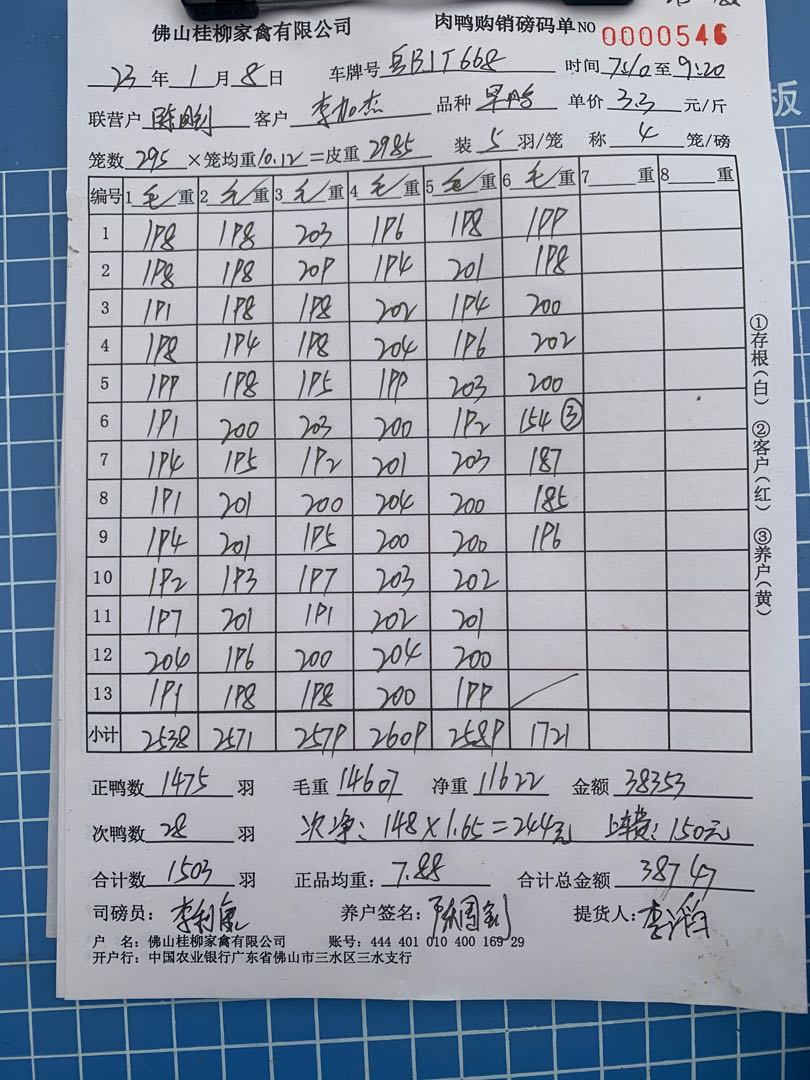 佛山桂柳家禽有限公司 肉鸭购销磅码单 NO 0000546
23 年 1 月 8 日 车牌号 粤BJT668 时间 7:10 至 9:20
联营户 客户 李加杰 品种 单价 3.3 元/斤
笼数 295 ×笼均重 10.12 =皮重 2985 装 5 羽/笼 称 4 笼/磅
编号 1 毛/重 2 毛/重 3 毛/重 4 毛/重 5 毛/重 6 毛/重 7 重 8 重
1 198 198 203 196 198 199
2 198 198 209 194 201 198
3 191 198 198 202 194 200
4 198 194 198 204 196 202
5 199 198 195 199 203 200
6 191 200 203 200 192 154 ③
7 194 195 192 201 203 187
8 191 201 200 204 200 185
9 194 201 195 200 200 196
10 192 193 197 203 202
11 197 201 191 202 201
12 204 196 200 204 200
13 191 198 198 200 199
小计 2538 2571 2579 2609 2589 1721
正鸭数 1475 羽 毛重 14607 净重 11622 金额 38353
次鸭数 28 羽 次净：148×1.65=244元 上车费：150元
合计数 1503 羽 正品均重：7.88 合计总金额 38747
司磅员： 养户签名： 提货人：
户 名：佛山桂柳家禽有限公司 账号：444 401 010 400 169 29
开户行：中国农业银行广东省佛山市三水区三水支行
①存根（白） ②客户（红） ③养户（黄）
板